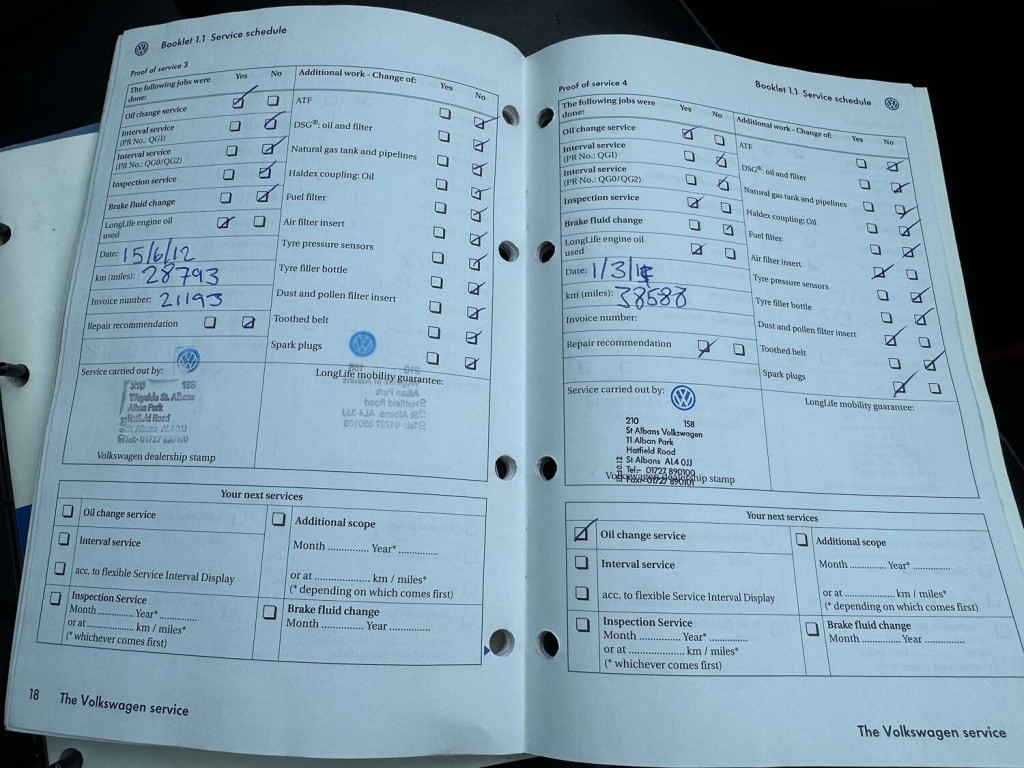 Booklet 1.1 Service schedule
Proof of service 3
The following jobs were done:
Yes No
Additional work - Change of:
Yes No
Oil change service
Interval service
(PR No.: QG1)
Interval service
(PR No.: QG0/QG2)
Inspection service
Brake fluid change
LongLife engine oil used
Date: 15/6/12
km (miles): 28793
Invoice number: 21193
Repair recommendation
ATF
DSG®: oil and filter
Natural gas tank and pipelines
Haldex coupling: Oil
Fuel filter
Air filter insert
Tyre pressure sensors
Tyre filler bottle
Dust and pollen filter insert
Toothed belt
Spark plugs
Service carried out by:
LongLife mobility guarantee:
Alban Park
Hatfield Road
Volkswagen dealership stamp
Your next services
Oil change service
Interval service
acc. to flexible Service Interval Display
Inspection Service
Month ............ Year* ............
or at ............ km / miles*
(* whichever comes first)
Additional scope
Month ............ Year* ............
or at ............ km / miles*
(* depending on which comes first)
Brake fluid change
Month ............ Year ............
18 The Volkswagen service
Booklet 1.1 Service schedule
Proof of service 4
The following jobs were done:
Yes No
Additional work - Change of:
Yes No
Oil change service
Interval service
(PR No.: QG1)
Interval service
(PR No.: QG0/QG2)
Inspection service
Brake fluid change
LongLife engine oil used
Date: 1/3/
km (miles): 38588
Invoice number:
Repair recommendation
ATF
DSG®: oil and filter
Natural gas tank and pipelines
Haldex coupling: Oil
Fuel filter
Air filter insert
Tyre pressure sensors
Tyre filler bottle
Dust and pollen filter insert
Toothed belt
Spark plugs
Service carried out by:
LongLife mobility guarantee:
210 158
St Albans Volkswagen
11 Alban Park
Hatfield Road
St Albans AL4 0JJ
Tel:- 01727 890100
Fax:- 01727 890101
Volkswagen dealership stamp
Your next services
Oil change service
Interval service
acc. to flexible Service Interval Display
Inspection Service
Month ............ Year* ............
or at ............ km / miles*
(* whichever comes first)
Additional scope
Month ............ Year* ............
or at ............ km / miles*
(* depending on which comes first)
Brake fluid change
Month ............ Year ............
The Volkswagen service